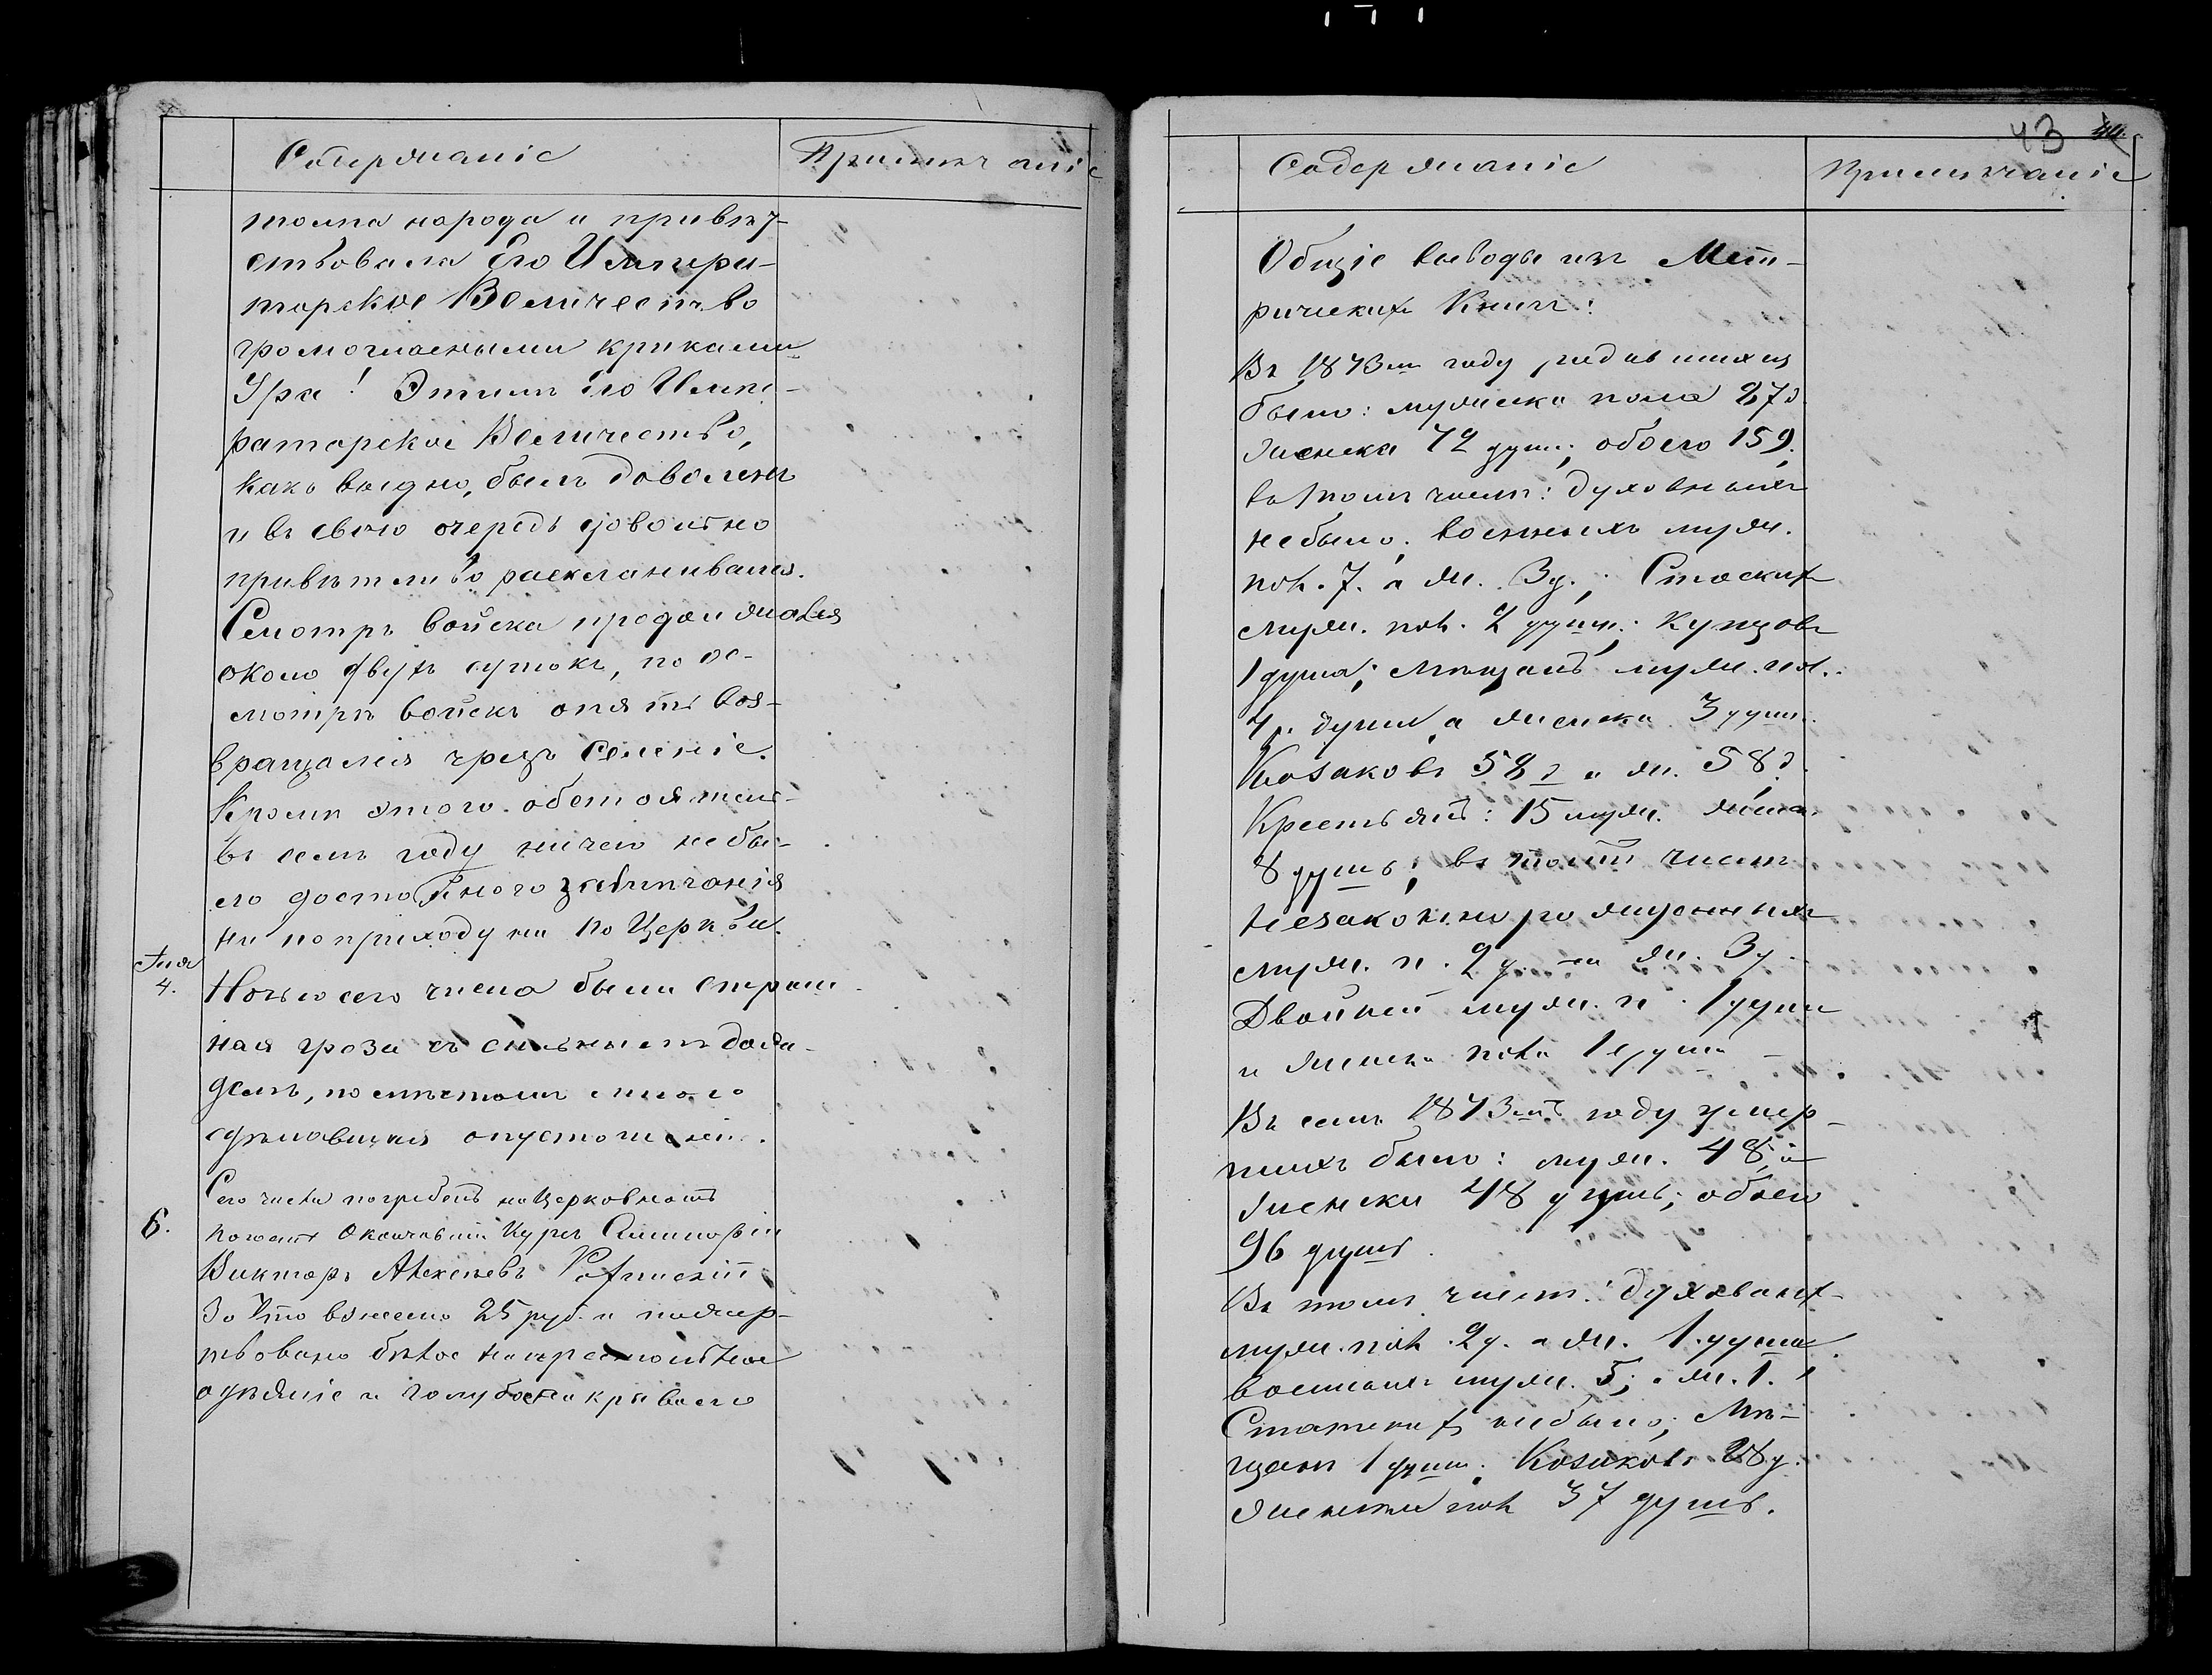 Содержаніе
Примѣчаніе
толпа народа и привѣт-
ствовала Его Импера-
торское Величество
громогласными криками
Ура! Этимъ Его Импе-
раторское Величество,
какъ видно, былъ доволенъ
и въ свою очередь довольно
привѣтливо раскланивался.
Смотръ войска продолжался
около двухъ сутокъ, по ос-
мотрѣ войскъ опять воз-
вращался чрезъ селеніе.
Кромѣ этого обстоятельс-
въ семъ году ничего не бы-
ло достойнаго замѣчанія
ни по приходу ни по Церкви.
4.
Ночью сего числа была страш-
ная гроза съ сильнымъ дож-
демъ, по мѣстамъ много
сдѣлавшая опустошенія.
6.
Сего числа погребенъ на церковномъ
погостѣ окончившій курсъ Семинаріи
Викторъ Алексѣевъ
За что взнесено 25 руб. и пожер-
твовано бѣлое на престольное
одѣяніе и голубое на крывало
43
Содержаніе
Примѣчаніе
Общіе выводы изъ Мет-
рическихъ Книгъ:
Въ 1873мъ году родившихся
было: мужеска пола 87 д.
женска 72 душ., обоего 159.
въ томъ числѣ: духовныхъ
не было, военныхъ муж.
пол. 7. а ж. 3 д.; Статскихъ
муж. пол. 2 души; Купцовъ
1 душа; Мѣщанъ муж. пол.
4. души, а женска 3 души.
Козаковъ 58 д. а ж. 58 д.
Крестьянъ: 15 муж. женск.
8 душъ; въ томъ числѣ
незаконнорожденныхъ
муж. п. 2 д. а ж. 3 д.
Двойней муж. п. 1 душа
и женска пола 1 душа
Въ семъ 1873мъ году умер-
шихъ было: муж. 48, а
женска 48 душъ; обоего
96 душъ.
Въ томъ числѣ: духовныхъ
муж. пол. 2 д. а ж. 1. душа.
военныхъ муж. 5; а ж. 1.
Статскихъ не было; Мѣ-
щанъ 1 душа. Козаковъ 28 д.
женска пол 37 душъ.